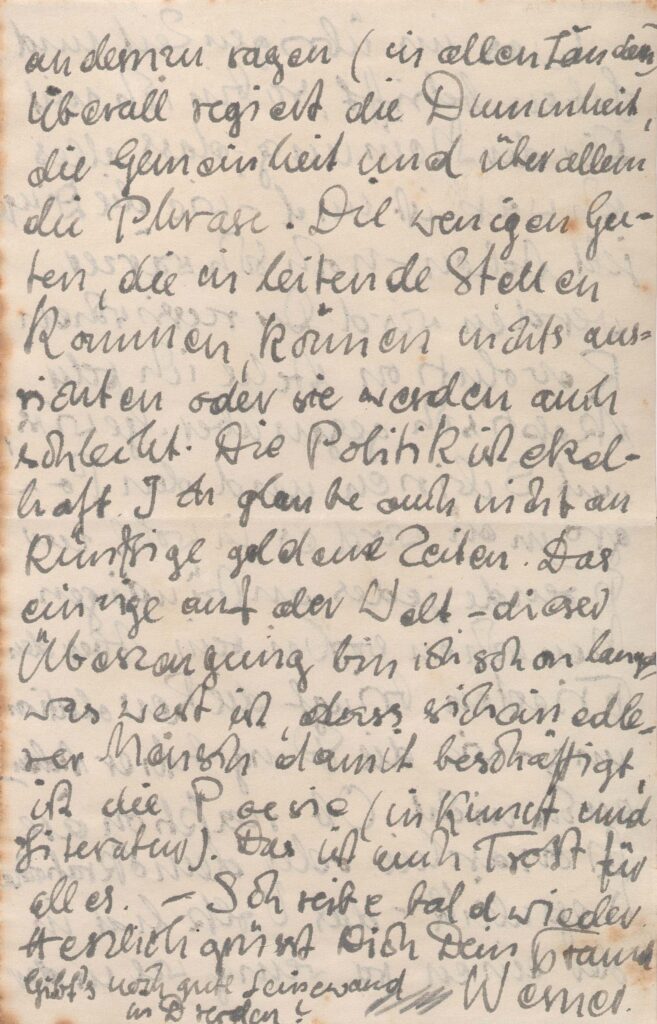 anderzu sagen (in allen Ländern)
Überall regiert die Dummheit,
die Gemeinheit und über allem
die Phrase. Die wenigen Gu-
ten, die in leitende Stellen
Kommen, können nichts aus-
richten oder sie werden auch
schlecht. Die Politik ist ekel-
haft. Ich glaube auch nicht an
Künftige goldene Zeiten. Das
einzige auf der Welt – dieser
Überzeugung bin ich schon lange
was wert ist, dass sich ein edle-
rer Mensch damit beschäftigt,
ist die Poesie (in Kunst und
Literatur). Das ist auch Trost für
alles. – Schreibe bald wieder
Herzlich grüsst Dich Dein Freund
Gibt's noch gute Leinewand Werner.
in Dresden?